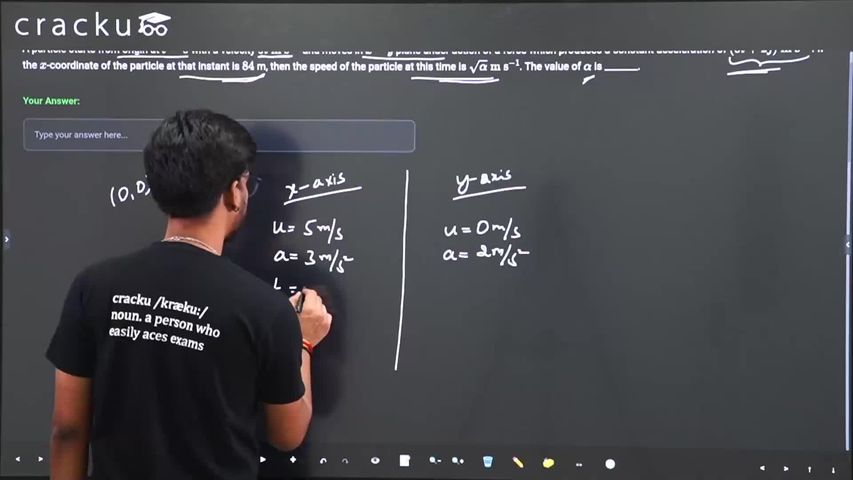 cracku
A particle starts from origin at with a velocity and moves in plane under action of a force which produces a constant acceleration of
the x-coordinate of the particle at that instant is 84 m, then the speed of the particle at this time is √α m s⁻¹. The value of α is ____
Your Answer:
Type your answer here...
(0,0
x-axis
y-axis
u = 5 m/s
u = 0 m/s
a = 3 m/s²
a = 2 m/s²
t =
cracku /kræku:/
noun. a person who
easily aces exams